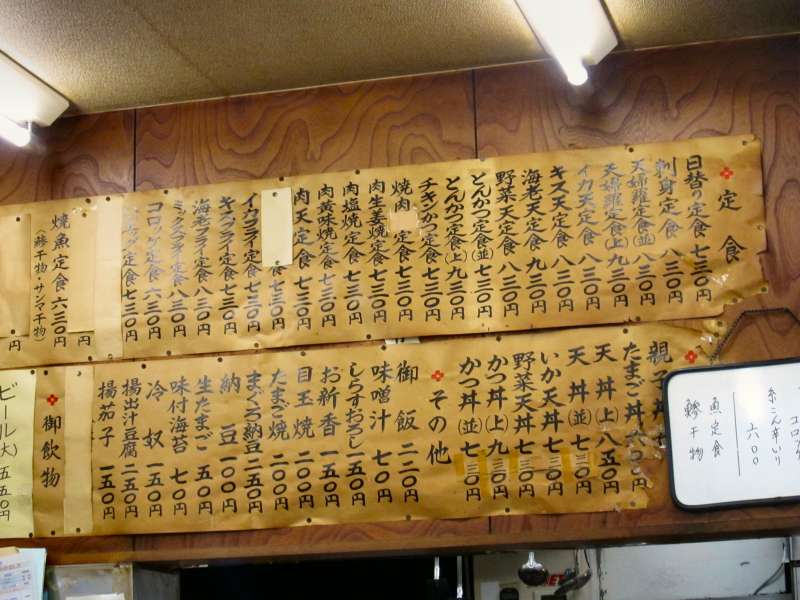 定食
日替り定食 七三〇円
刺身定食 八三〇円
天婦羅定食(並) 八三〇円
天婦羅定食(上) 八三〇円
イカ天定食 八三〇円
キス天定食 八三〇円
海老天定食 九三〇円
野菜天定食 八三〇円
とんかつ定食(並) 七三〇円
とんかつ定食(上) 九三〇円
チキンかつ定食 七三〇円
焼肉定食 七三〇円
肉生姜焼定食 七三〇円
肉塩焼定食 七三〇円
肉黄味焼定食 七三〇円
肉天定食 七三〇円
食 七三〇円
イカフライ定食 七三〇円
キスフライ定食 七三〇円
海老フライ定食 八三〇円
ミックスフライ定食 八三〇円
コロッケ定食 六三〇円
定食 七三〇円
円
焼魚定食 六三〇円
(鯵干物・サンマ干物)
円
親子丼
たまご丼 六〇〇円
天丼(上) 八五〇円
天丼(並) 七三〇円
いか天丼 七三〇円
野菜天丼 七三〇円
かつ丼(上) 九三〇円
かつ丼(並) 七三〇円
その他
御飯 二二〇円
味噌汁 七〇円
しらすおろし 一五〇円
お新香 一五〇円
目玉焼 二〇〇円
たまご焼 二〇〇円
まぐろ納豆 二五〇円
納豆 一〇〇円
生たまご 五〇円
味付海苔 七〇円
冷奴 一五〇円
揚出汁豆腐 二五〇円
揚茄子 一五〇円
御飲物
ビール(大) 五五〇円
糸こん辛いり
六〇〇
魚定食
鯵干物